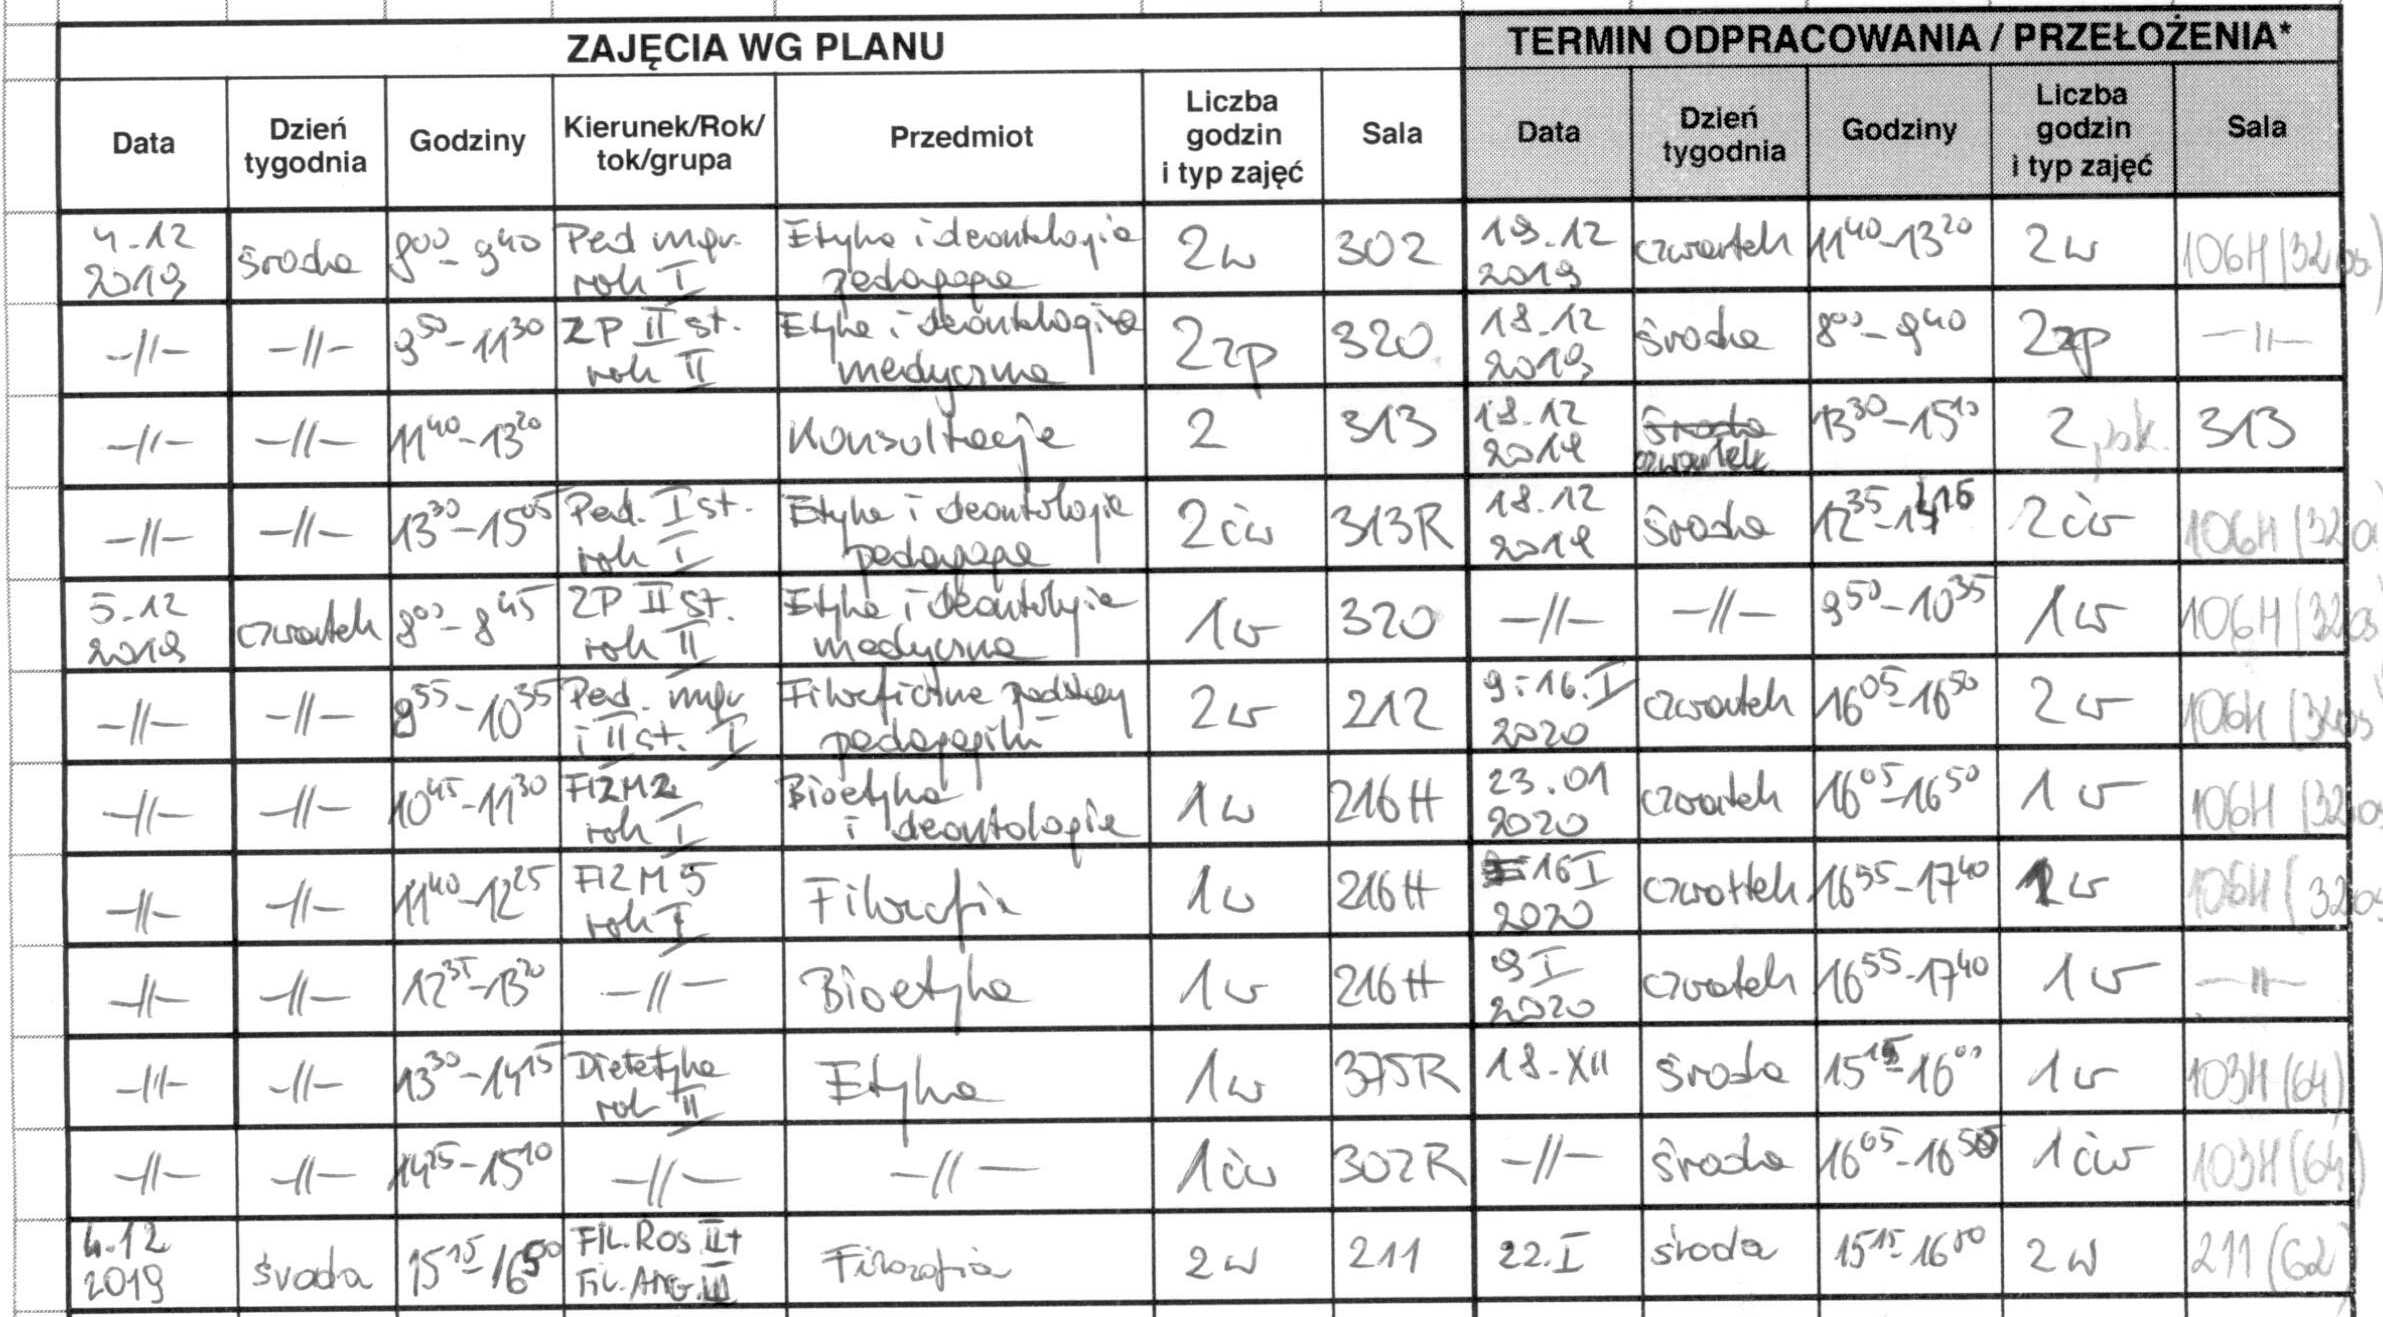 ZAJĘCIA WG PLANU
TERMIN ODPRACOWANIA / PRZEŁOŻENIA*
Data
Dzień
tygodnia
Godziny
Kierunek/Rok/
tok/grupa
Przedmiot
Liczba
godzin
i typ zajęć
Sala
Data
Dzień
tygodnia
Godziny
Liczba
godzin
i typ zajęć
Sala
4.12
2019
środa
8⁰⁰-9⁴⁰
Ped mgr.
rok I
Etyka i deontologia
pedagoga
2w
302
19.12
2019
czwartek
11⁴⁰-13²⁰
2w
106H (32os)
-//-
-//-
9⁵⁰-11³⁰
ZP II st.
rok II
Etyka i deontologia
medyczna
2zp
320
18.12
2019
środa
8⁰⁰-9⁴⁰
2zp
-//-
-//-
-//-
11⁴⁰-13²⁰
Konsultacje
2
313
18.12
2019
środa
czwartek
13³⁰-15¹⁰
2
313
-//-
-//-
13³⁰-15⁰⁵
Ped. I st.
rok I
Etyka i deontologia
pedagoga
2ćw
313R
18.12
2019
środa
12³⁵-14¹⁵
2ćw
106H (32o
5.12
2019
czwartek
8⁰⁰-8⁴⁵
ZP II st.
rok II
Etyka i deontologia
medyczna
1w
320
-//-
-//-
9⁵⁰-10³⁵
1w
106H (32os
-//-
-//-
9⁵⁵-10³⁵
Ped. mgr
i II st. I
Filozoficzne podstawy
pedagogiki
2w
212
9 i 16.I
2020
czwartek
16⁰⁵-16⁵⁰
2w
106H (32os
-//-
-//-
10⁴⁵-11³⁰
FIZM2
rok I
Bioetyka
i deontologia
1w
216H
23.01
2020
czwartek
16⁰⁵-16⁵⁰
1w
106H (32os
-//-
-//-
11⁴⁰-12²⁵
FIZM5
rok I
Filozofia
1w
216H
16 I
2020
czwartek
16⁵⁵-17⁴⁰
1w
106H (32os
-//-
-//-
12³⁵-13²⁰
-//-
Bioetyka
1w
216H
9 I
2020
czwartek
16⁵⁵-17⁴⁰
1w
-//-
-//-
-//-
13³⁰-14¹⁵
Dietetyka
rok II
Etyka
1w
375R
18.XII
środa
15¹⁵-16⁰⁰
1w
103H (64)
-//-
-//-
14²⁵-15¹⁰
-//-
-//-
1ćw
302R
-//-
środa
16⁰⁵-16⁵⁰
1ćw
103H (64)
4.12
2019
środa
15¹⁵-16⁵⁰
FIL.ROS II+
FIL.ANG.III
Filozofia
2w
211
22.I
środa
15¹⁵-16⁵⁰
2w
211 (62)